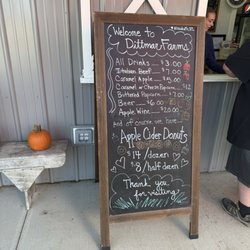 Welcome to
Dittmar Farms
All Drinks $3.00
Italian Beef $7.00
Caramel Apple $5.00
Caramel or Cheese Popcorn $12
Buttered Popcorn $7.00
Beer $6.00
Apple Wine $20.00
And of course we have
Apple Cider Donuts
$14/dozen
$8/half dozen
Thank you
for visiting